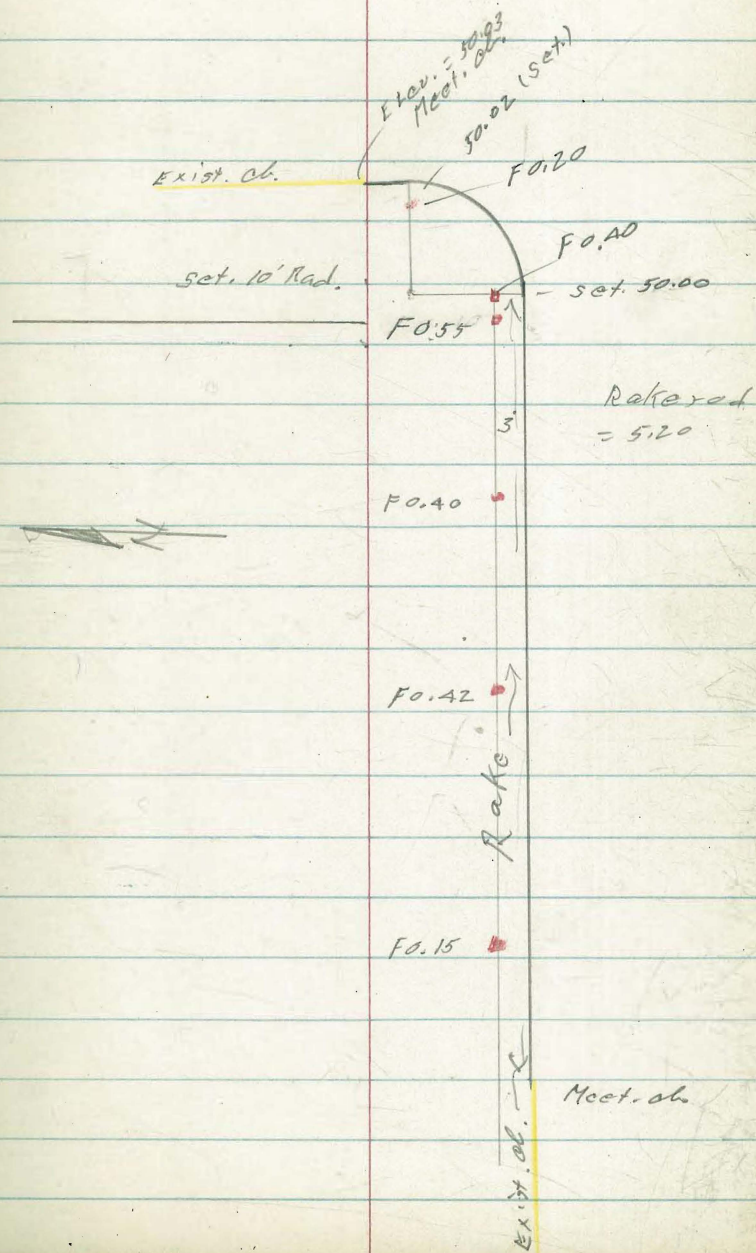 Elev. = 50.03
Meet. cb.
50.02 (Set.)
Exist. cb.
F0.20
F0.40
Set. 10' Rad.
- set. 50.00
F0.55
Rake rod
= 5.20
3.
F0.40
F0.42
Rake
F0.15
Meet. cb.
Exist. cb.